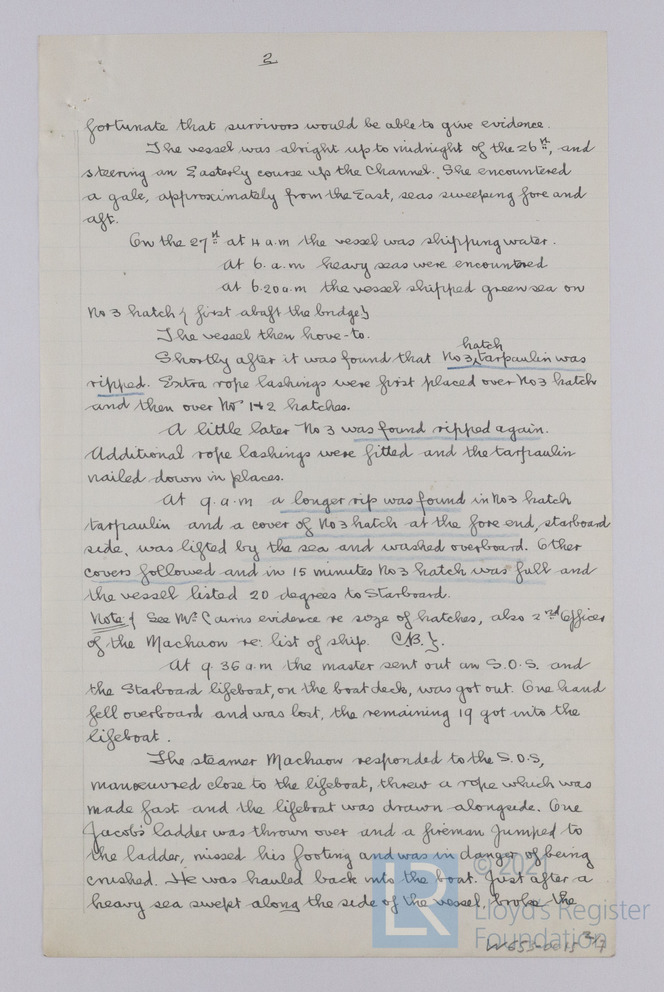 2
fortunate that survivors would be able to give evidence.
The vessel was alright up to midnight of the 26th, and
steering an Easterly course up the Channel. She encountered
a gale, approximately from the East, seas sweeping fore and
aft.
On the 27th at 4 a.m the vessel was shipping water.
At 6. a.m heavy seas were encountered
at 6.20 a.m the vessel shipped green sea on
No 3 hatch { first abaft the bridge}
The vessel then hove-to.
hatch
Shortly after it was found that No 3 tarpaulin was
ripped. Extra rope lashings were first placed over No 3 hatch
and then over Nos 1 & 2 hatches.
A little later No 3 was found ripped again.
Additional rope lashings were fitted and the tarpaulin
nailed down in places.
At 9.a.m a longer rip was found in No 3 hatch
tarpaulin and a cover of No 3 hatch at the fore end, starboard
side, was lifted by the sea and washed overboard. Other
covers followed and in 15 minutes No 3 hatch was full and
the vessel listed 20 degrees to Starboard.
Note { See Mr Cairns evidence re size of hatches, also 2nd Officer
of the Machaon re: list of ship. CB.}.
At 9.36 a.m the master sent out an S.O.S. and
the Starboard lifeboat, on the boat deck, was got out. One hand
fell overboard and was lost, the remaining 19 got into the
lifeboat.
The steamer Machaon responded to the S.O.S,
manoeuvred close to the lifeboat, threw a rope which was
made fast and the lifeboat was drawn alongside. One
Jacob's ladder was thrown over and a fireman jumped to
the ladder, missed his footing and was in danger of being
crushed. He was hauled back into the boat. Just after a
heavy sea swept along the side of the vessel, broke the
LR
Lloyd's Register
Foundation
W653-0015